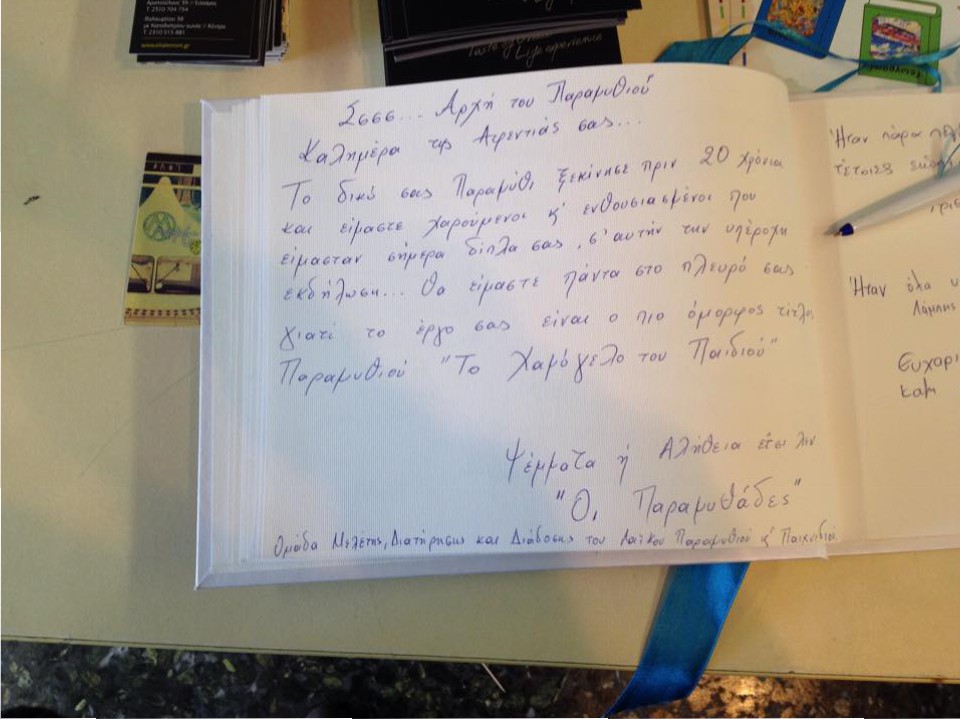 Τ 2510 704 754
Τ 2510 515 881
Taste
Life experience
Σσσσ... Αρχή του Παραμυθιού
Καλημέρα της Αφεντιάς σας...
Το δικό σας Παραμύθι ξεκίνησε πριν 20 χρόνια
και είμαστε χαρούμενοι κ' ενθουσιασμένοι που
είμασταν σήμερα δίπλα σας, σ' αυτήν την υπέροχη
εκδήλωση... Θα είμαστε πάντα στο πλευρό σας
γιατί το έργο σας είναι ο πιο όμορφος τίτλος
Παραμυθιού "Το Χαμόγελο του Παιδιού"
Ψέμματα ή Αλήθεια έτσι λεν
"Οι Παραμυθάδες"
Ομάδα Μελέτης, Διατήρησης και Διάδοσης του Λαϊκού Παραμυθιού κ' Παιχνιδιού
Ήταν πάρα
τέτοιες
Ήταν όλα
Λάμπης